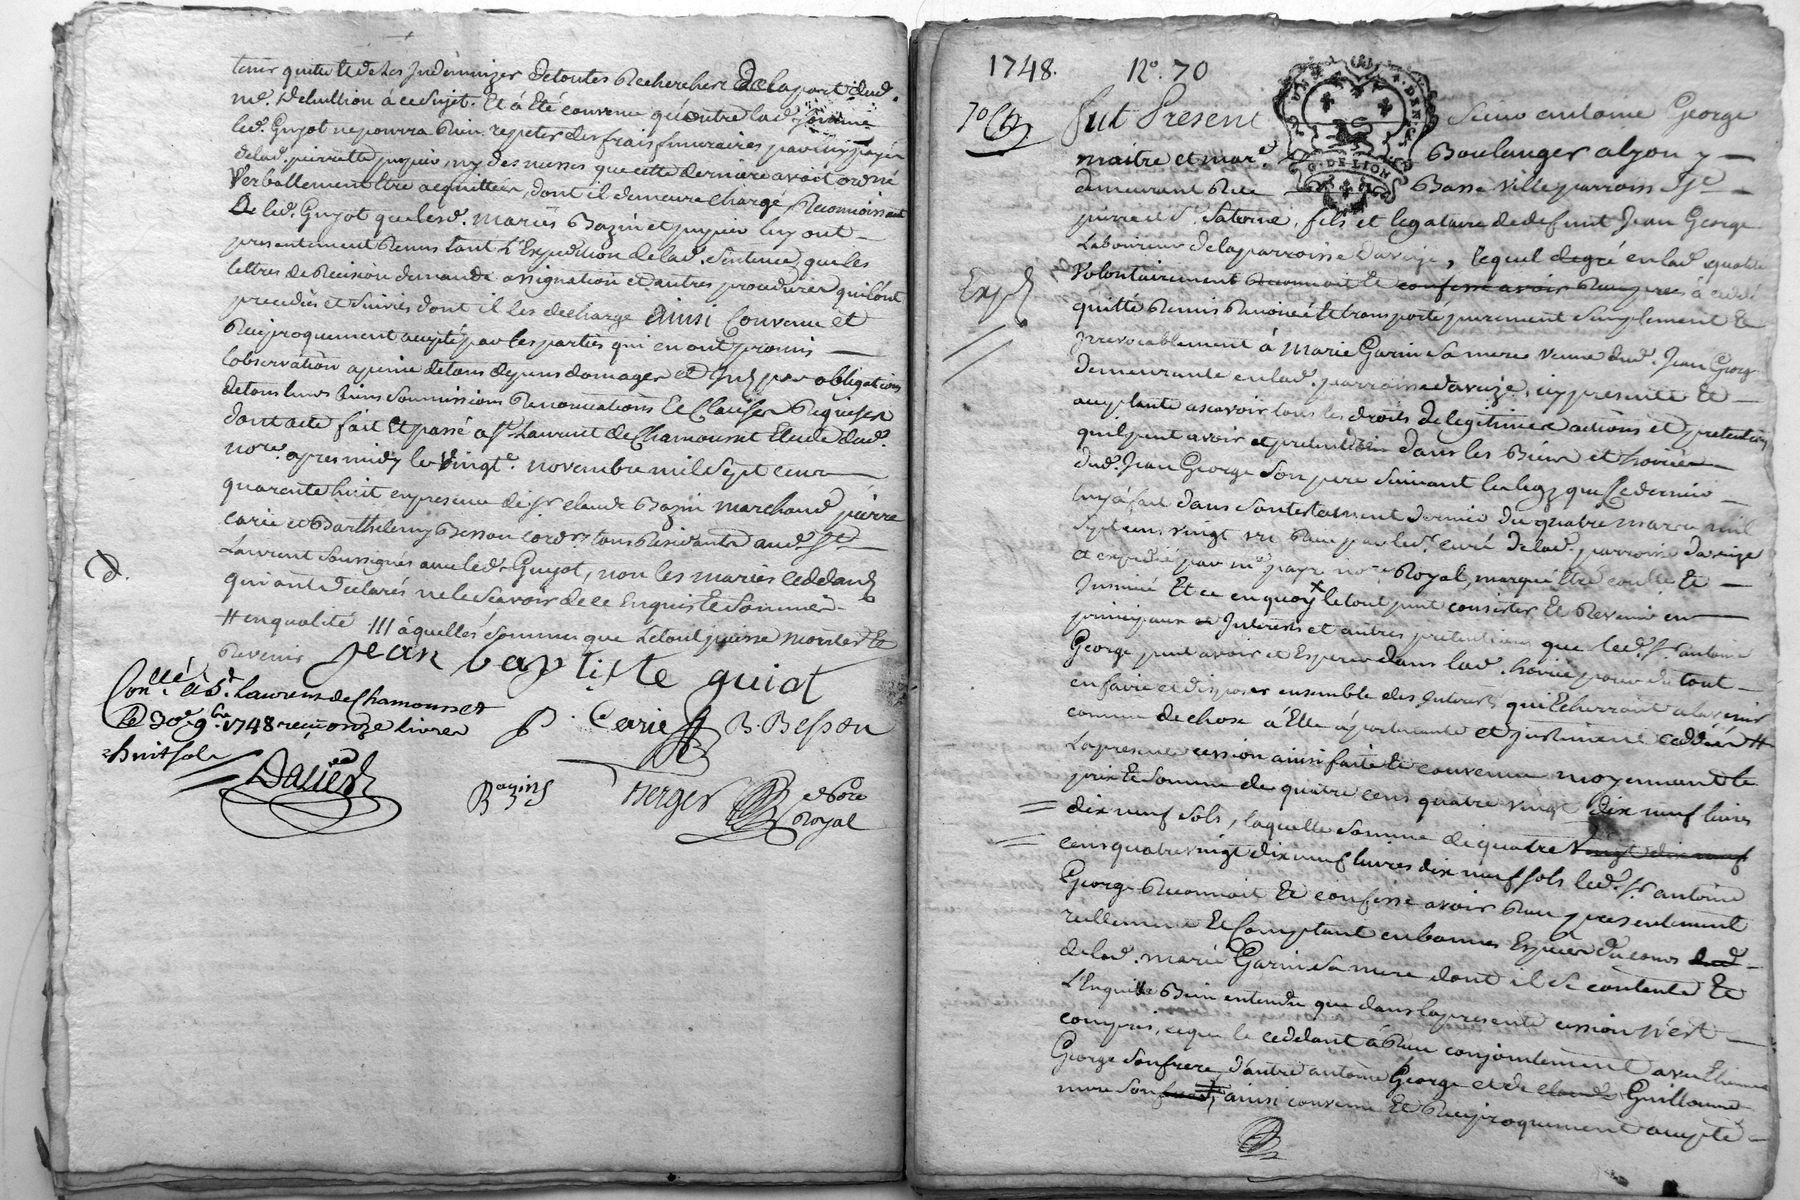 tenir quitte et de les Indemnizer de toutes Recherches de la part dud.
me. à ce sujet. Et à été convenu qu'outre lad. somme
led. Guyot ne pourra Rien repeter des frais funeraires par luy payés
delad. pierrette pupier, ny des messes que cette derniere avoit ordné
Verballement être acquittées, dont il demeure chargé, Reconnoissant
Le led. Guyot que lesd. mariés Bazin et pupier luy ont
presentement Remis tant L'Expedition de lad. sentence, que les
lettres de Récision demande assignation et autres procedures qu'ils ont
precedés et suivies dont il les décharge ainsi Convenu et
Reciproquement accepté par les parties qui en ont promis
l'observation a peine de tous depens domages et Int. par obligations
de tous leurs biens soumissions Renonciations Et Clauses Requises
dont acte fait Et passé a St. Laurent de Chamousset Etude dud.
nore. apres midy le Vingte. novembre mil sept cent
quarente huit en presence de sr. claude Bazin marchand, pierre
carie et Barthelemy Besson cordrs. tous Residants aud. St.
Laurent soussignés avec led. Guyot, non les mariés ceddants
qui ont declarés ne le scavoir de ce Enquis Et sommés
# en qualité /// à quelles sommes que Le tout puisse monter et
Revenir
Jean baptiste guiot
Conllé. à St. Laurens de Chamousset
Le 30e. 9bre. 1748 reçu onze livres
huit sols
P. Carie B. Besson
d.
Bazin Berger nore
Royal
1748. No. 70
G. DE LION
fut Present Sieur antoine George
maitre et mard. Boulanger a lyon y
demeurant Rue Basse ville parroisse St.
pierre et St. Saturnin, fils et legataire de defunt Jean George
Laboureur de la parroisse Daveize, lequel degré en lad. qualité
Exp.
Volontairement Reconnoit et confesse avoir
quitté Remis Renoncé Et transporté purement simplement Et
Irrevocablement à Marie Garin sa mere veuve dud. Jean George
Demeurante en lad. parroisse daveize, icy presente Et
acceptante ascavoir tous les droits de legitimes actions et pretentions
quil peut avoir et pretendre dans les Biens et hoirie
dud. Jean George son pere suivant le legs que ce dernier
luy à fait dans son testament dernier du quatre mars mil
sept cent vingt Reçu par led. curé de lad. parroisse daveize
et expedié par me. payre nore. Royal, marqué Etre controllé Et
Insinué Et ce en quoy le tout peut consister Et Revenir en
principaux et Interests et autres pretentions que led. sr. antoine
George peut avoir et Esperer dans lad. hoirie pour du tout
en faire et disposer ensemble des Interests qui Echerront a l'avenir
comme de chose à Elle apartenante et justement ceddée #
La presente cession ainsi faite Et convenue moyennant le
prix Et somme de quatre cens quatre vingt dix neuf livres
dix neuf sols, laquelle somme de quatre vingt dix neuf
cens quatre vingt dix neuf livres dix neuf sols led. sr. antoine
George Reconnoit Et confesse avoir Reçu presentement
reellement Et Comptant en bonnes Especes du cours
de lad. marie Garin sa mere dont il se contente Et
L'Enquitte Bien entendu que dans la presente cession n'est
compris, ce que le ceddant à Reçu conjointement avec Etienne
George son frere, d'autre antoine George et de Guillaume
ainsi convenu Et Reciproquement accepté